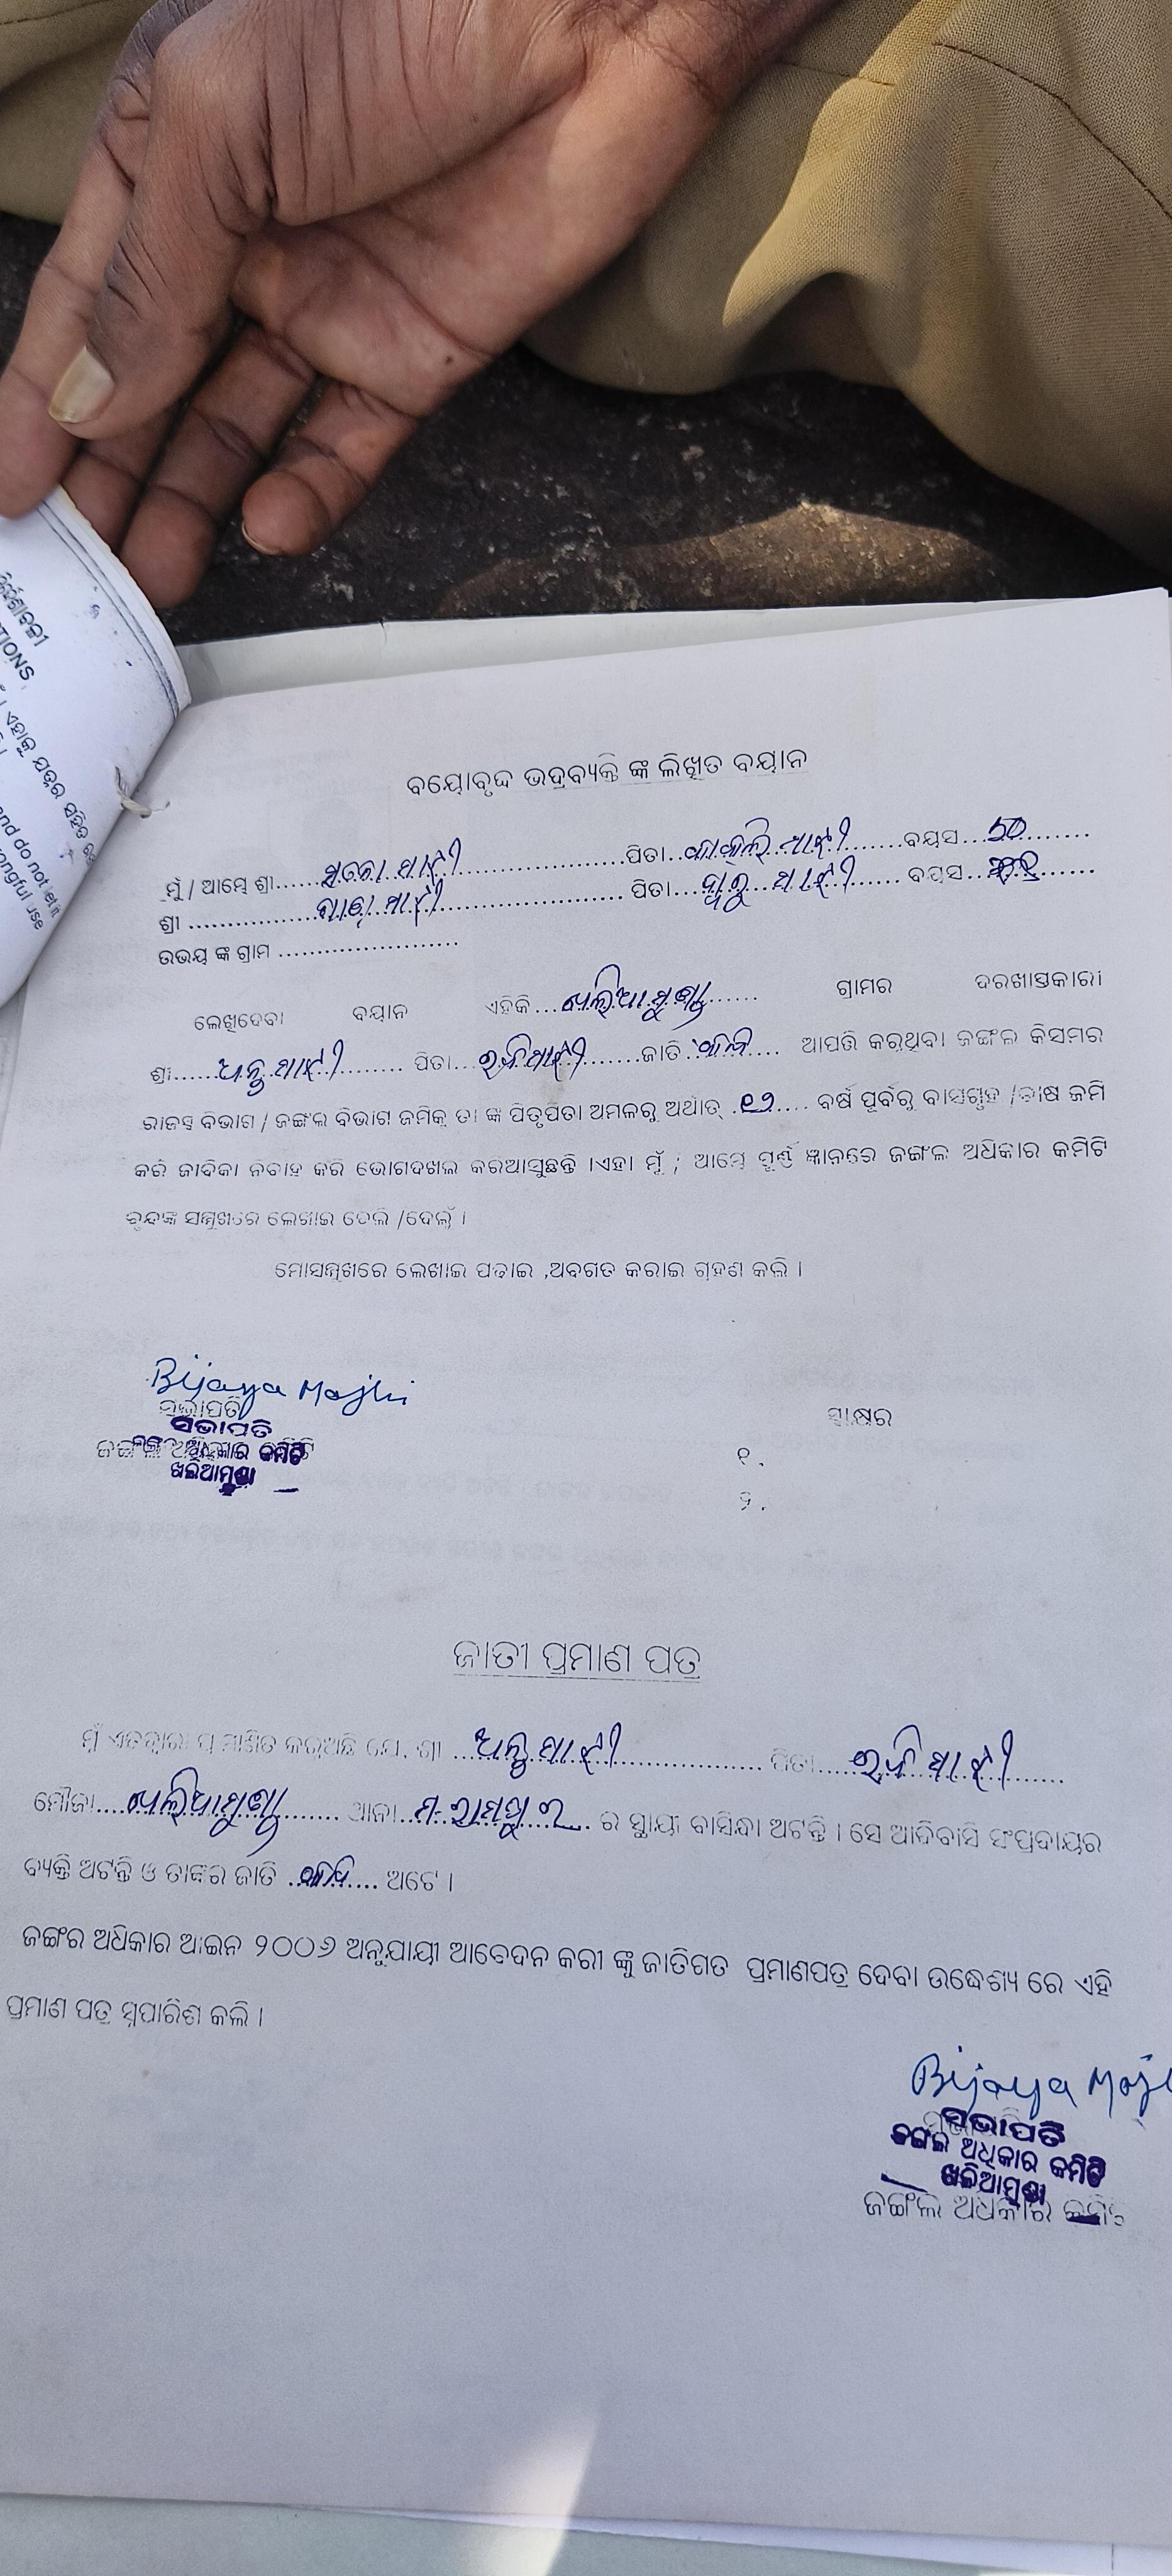 ନିର୍ଦ୍ଦେଶାବଳୀ
TIONS
ଏହାକୁ ଯତ୍ନର ସହିତ
and do not let it
ongful use
ବୟୋବୃଦ୍ଧ ଭଦ୍ରବ୍ୟକ୍ତି ଙ୍କ ଲିଖିତ ବୟାନ
ମୁଁ / ଆମ୍ଭେ ଶ୍ରୀ...... ମାଝୀ ............ପିତା.. ମାଝୀ ......ବୟସ...50........
ଶ୍ରୀ ............ ମାଝୀ ............ ପିତା... ମାଝୀ ...... ବୟସ...
ଉଭୟ ଙ୍କ ଗ୍ରାମ ........................
ଲେଖିଦେବା ବୟାନ ଏହିକି...ଖଲିଆମୁଣ୍ଡା...... ଗ୍ରାମର ଦରଖାସ୍ତକାରୀ
ଶ୍ରୀ...... ମାଝୀ ........ ପିତା... ମାଝୀ ......ଜାତି ..... ଆପତ୍ତି କରୁଥିବା ଜଙ୍ଗଲ କିସମର
ରାଜସ୍ୱ ବିଭାଗ / ଜଙ୍ଗଲ ବିଭାଗ ଜମିକୁ ତା ଙ୍କ ପିତୃପିତା ଅମଳରୁ ଅର୍ଥାତ୍ ..... ବର୍ଷ ପୂର୍ବରୁ ବାସଗୃହ /ଚାଷ ଜମି
କରି ଜୀବିକା ନିର୍ବାହ କରି ଭୋଗଦଖଲ କରିଆସୁଛନ୍ତି ।ଏହା ମୁଁ ; ଆମ୍ଭେ ପୂର୍ଣ୍ଣ ଜ୍ଞାନରେ ଜଙ୍ଗଳ ଅଧିକାର କମିଟି
ବୃନ୍ଦଙ୍କ ସମ୍ମୁଖରେ ଲେଖାଇ ଦେଲି /ଦେଲୁଁ ।
ମୋସମ୍ମୁଖରେ ଲେଖାଇ ପଢାଇ ,ଅବଗତ କରାଇ ଗ୍ରହଣ କଲି ।
Bijaya Majhi
ସଭାପତି
ସଭାପତି
ଜଙ୍ଗଲ ଅଧିକାର କମିଟି
ଖଲିଆମୁଣ୍ଡା
ସ୍ୱାକ୍ଷର
୧.
୨.
ଜାତୀ ପ୍ରମାଣ ପତ୍ର
ମୁଁ ଏତଦ୍ୱାରା ପ୍ରମାଣିତ କରୁଅଛି ଯେ, ଶ୍ରୀ ... ମାଝୀ ............ ପିତା..... ମାଝୀ ......
ମୌଜା....ଖଲିଆମୁଣ୍ଡା....... ଥାନା..ମ.ରାମପୁର.. ର ସ୍ଥାୟୀ ବାସିନ୍ଦା ଅଟନ୍ତି । ସେ ଆଦିବାସି ସଂପ୍ରଦାୟର
ବ୍ୟକ୍ତି ଅଟନ୍ତି ଓ ତାଙ୍କର ଜାତି ...... ଅଟେ ।
ଜଙ୍ଗର ଅଧିକାର ଆଇନ ୨୦୦୬ ଅନୁଯାୟୀ ଆବେଦନ କରୀ ଙ୍କୁ ଜାତିଗତ ପ୍ରମାଣପତ୍ର ଦେବା ଉଦ୍ଧେଶ୍ୟ ରେ ଏହି
ପ୍ରମାଣ ପତ୍ର ସୁପାରିଶ କଲି ।
Bijaya Maj
ସଭାପତି
ଜଙ୍ଗଲ ଅଧିକାର କମିଟି
ଖଲିଆମୁଣ୍ଡା
ଜଙ୍ଗଲ ଅଧିକାର କମିଟି